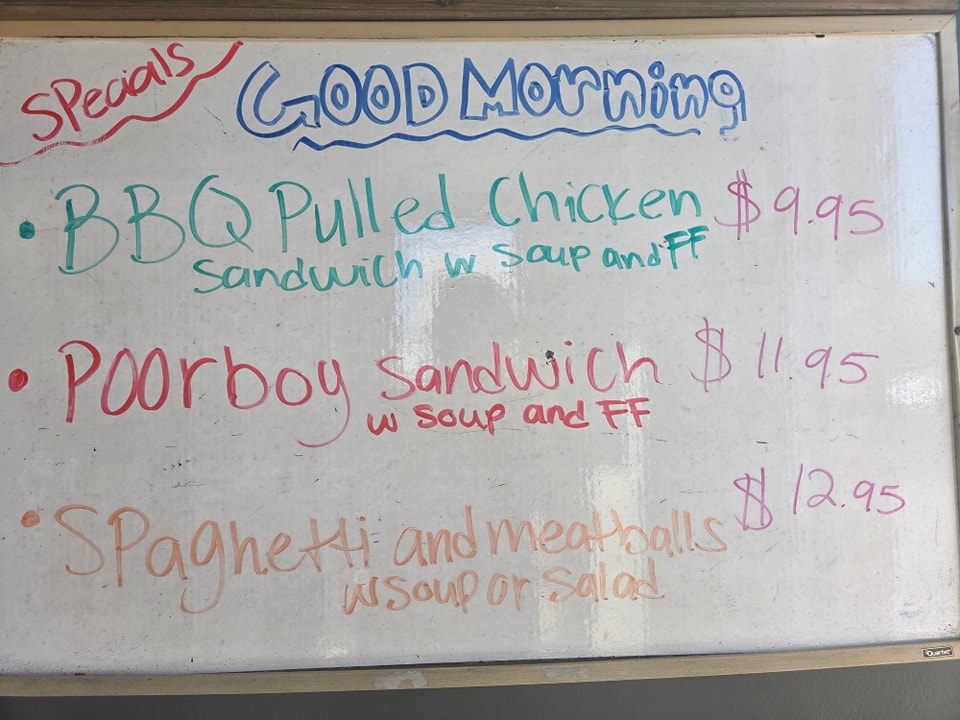 Specials
GOOD Morning
• BBQ Pulled Chicken $9.95
Sandwich w soup and FF
• Poorboy Sandwich $11.95
w soup and FF
• Spaghetti and meatballs $12.95
w soup or salad
Quartet